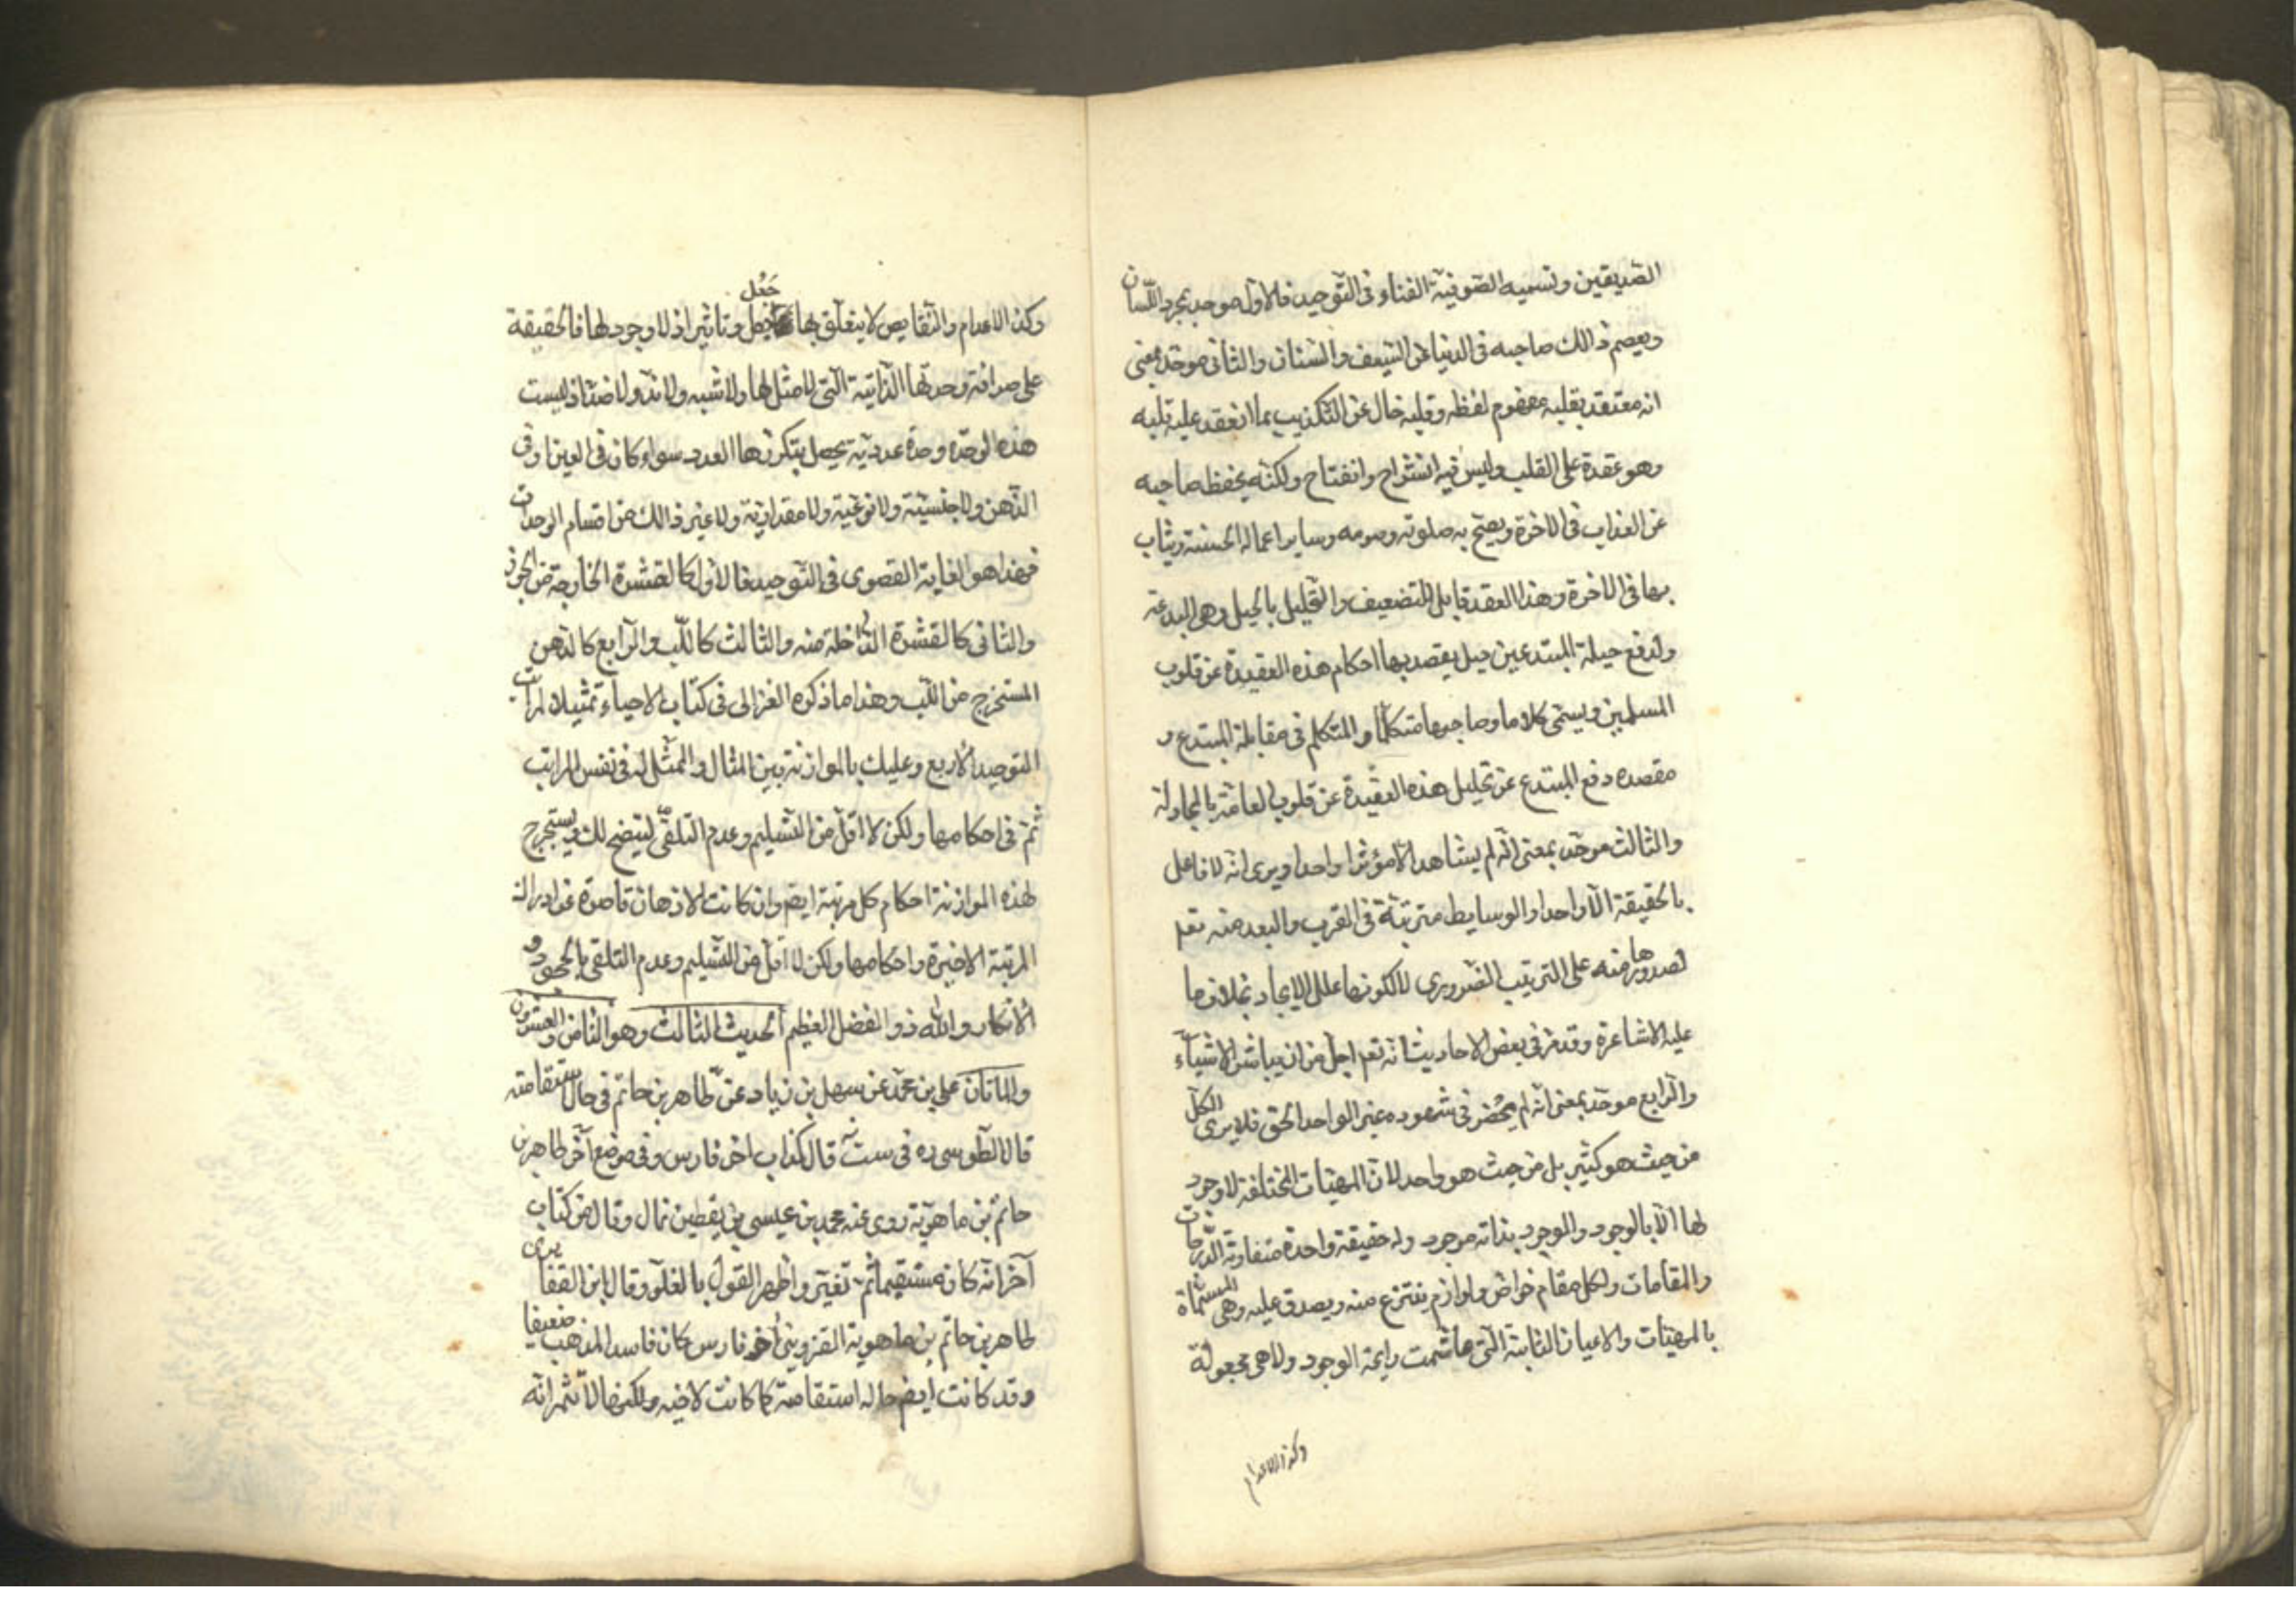 الصديقين وتسميه الصوفية الفناء في التوحيد فالاول موحد بمجرد اللسان
ويعصم ذالك صاحبه في الدنيا عن السيف والسنان والثاني موحد بمعنى
انه معتقد بقلبه مفهوم لفظه وقلبه خال عن التكذيب بما انعقد عليه قلبه
وهو عقدة على القلب وليس فيه انشراح وانفتاح ولكنه يحفظ صاحبه
عن العذاب في الاخرة ويصح به صلوته وصومه وساير اعماله الحسنة ويثاب
بها في الاخرة وهذا العقد قابل للتضعيف والتحليل بالحيل وهي البدعة
ولدفع حيلة المبتدعين حيل يقصد بها احكام هذه العقيدة عن قلوب
المسلمين ويسمى كلاما وصاحبها متكلما والمتكلم في مقابلة المبتدع و
مقصده دفع المبتدع عن تحليل هذه العقيدة عن قلوب العامة بالمجاولة
والثالث موحد بمعنى انه لم يشاهد الا مؤثرا واحدا ويرى انه لا فاعل
بالحقيقة الا واحدا والوسايط مترتبة في القرب والبعد منه تعم
لصدورها منه على الترتيب الضروري لا لكونها علل الايجاد بخلاف ما
عليه الاشاعرة وقد مر في بعض الاحاديث انه تعم اجل من ان يباشر الاشياء
والرابع موحد بمعنى انه لم يحضر في شهوده غير الواحد الحق فلا يرى الكل
من حيث هو كثير بل من حيث هو واحد لان المهيات المختلفة لا وجود
لها الا بالوجود والموجود بذاته موجود وله حقيقة واحدة متفاوتة الدرجات
والمقامات ولكل مقام خواص ولوازم ينتزع منه ويصدق عليه وهي المسماة
بالمهيات والاعيان الثابتة التي ما شمت رايحة الوجود ولا هي مجعولة
وكذا الاعدام
وكذا الاعدام والنقايص لا يتعلق بها جعل وتاثير اذ لا وجود لها فالحقيقة
جعل
على صرافة وحدتها الذاتية التي لا مثل لها ولا شبه ولا ند ولا ضد اذ ليست
هذه الوحدة وحدة عددية يحصل بتكررها العدد سواء كان في العين او في
الذهن ولا جنسية ولا نوعية ولا مقدارية ولا غير ذالك من اقسام الوحدات
فهذا هو الغاية القصوى في التوحيد فالاول كالقشرة الخارجة من الجوز
والثاني كالقشرة الداخلة منه والثالث كاللب والرابع كالدهن
المستخرج من اللب وهذا ما ذكره الغزالي في كتاب الاحياء تمثيلا لمراتب
التوحيد الاربع وعليك بالموازنة بين المثال والممثل له في نفس المراتب
ثم في احكامها ولكن لا اقل من التسليم وعدم التلقي ليتضح لك ويستخرج
لهذه الموازنة احكام كل مرتبة ايضم وان كانت الاذهان قاصرة عن ادراك
المرتبة الاخيرة واحكامها ولكن لا اقل من التسليم وعدم التلقي بالجحود و
الانكار والله ذو الفضل العظيم الحديث الثالث وهو الثامن والعشرون
والماتان علي بن محمد عن سهل بن زياد عن طاهر بن حاتم في حال استقامته
قال الطوسي ره في ست قال كذاب اخو فارس وفي موضع آخر طاهر بن
حاتم بن ماهوية روى عنه محمد بن عيسى بن يقطين غال وقال من كتاب
آخر انه كان مستقيما ثم تغير واظهر القول بالغلو وقال ابن الغضايرى
طاهر بن حاتم بن ماهوية القزويني اخو فارس كان فاسد المذهب ضعيفا
وقد كانت ايضم حاله استقامة كما كانت لاخيه ولكنها لا تثمر انه